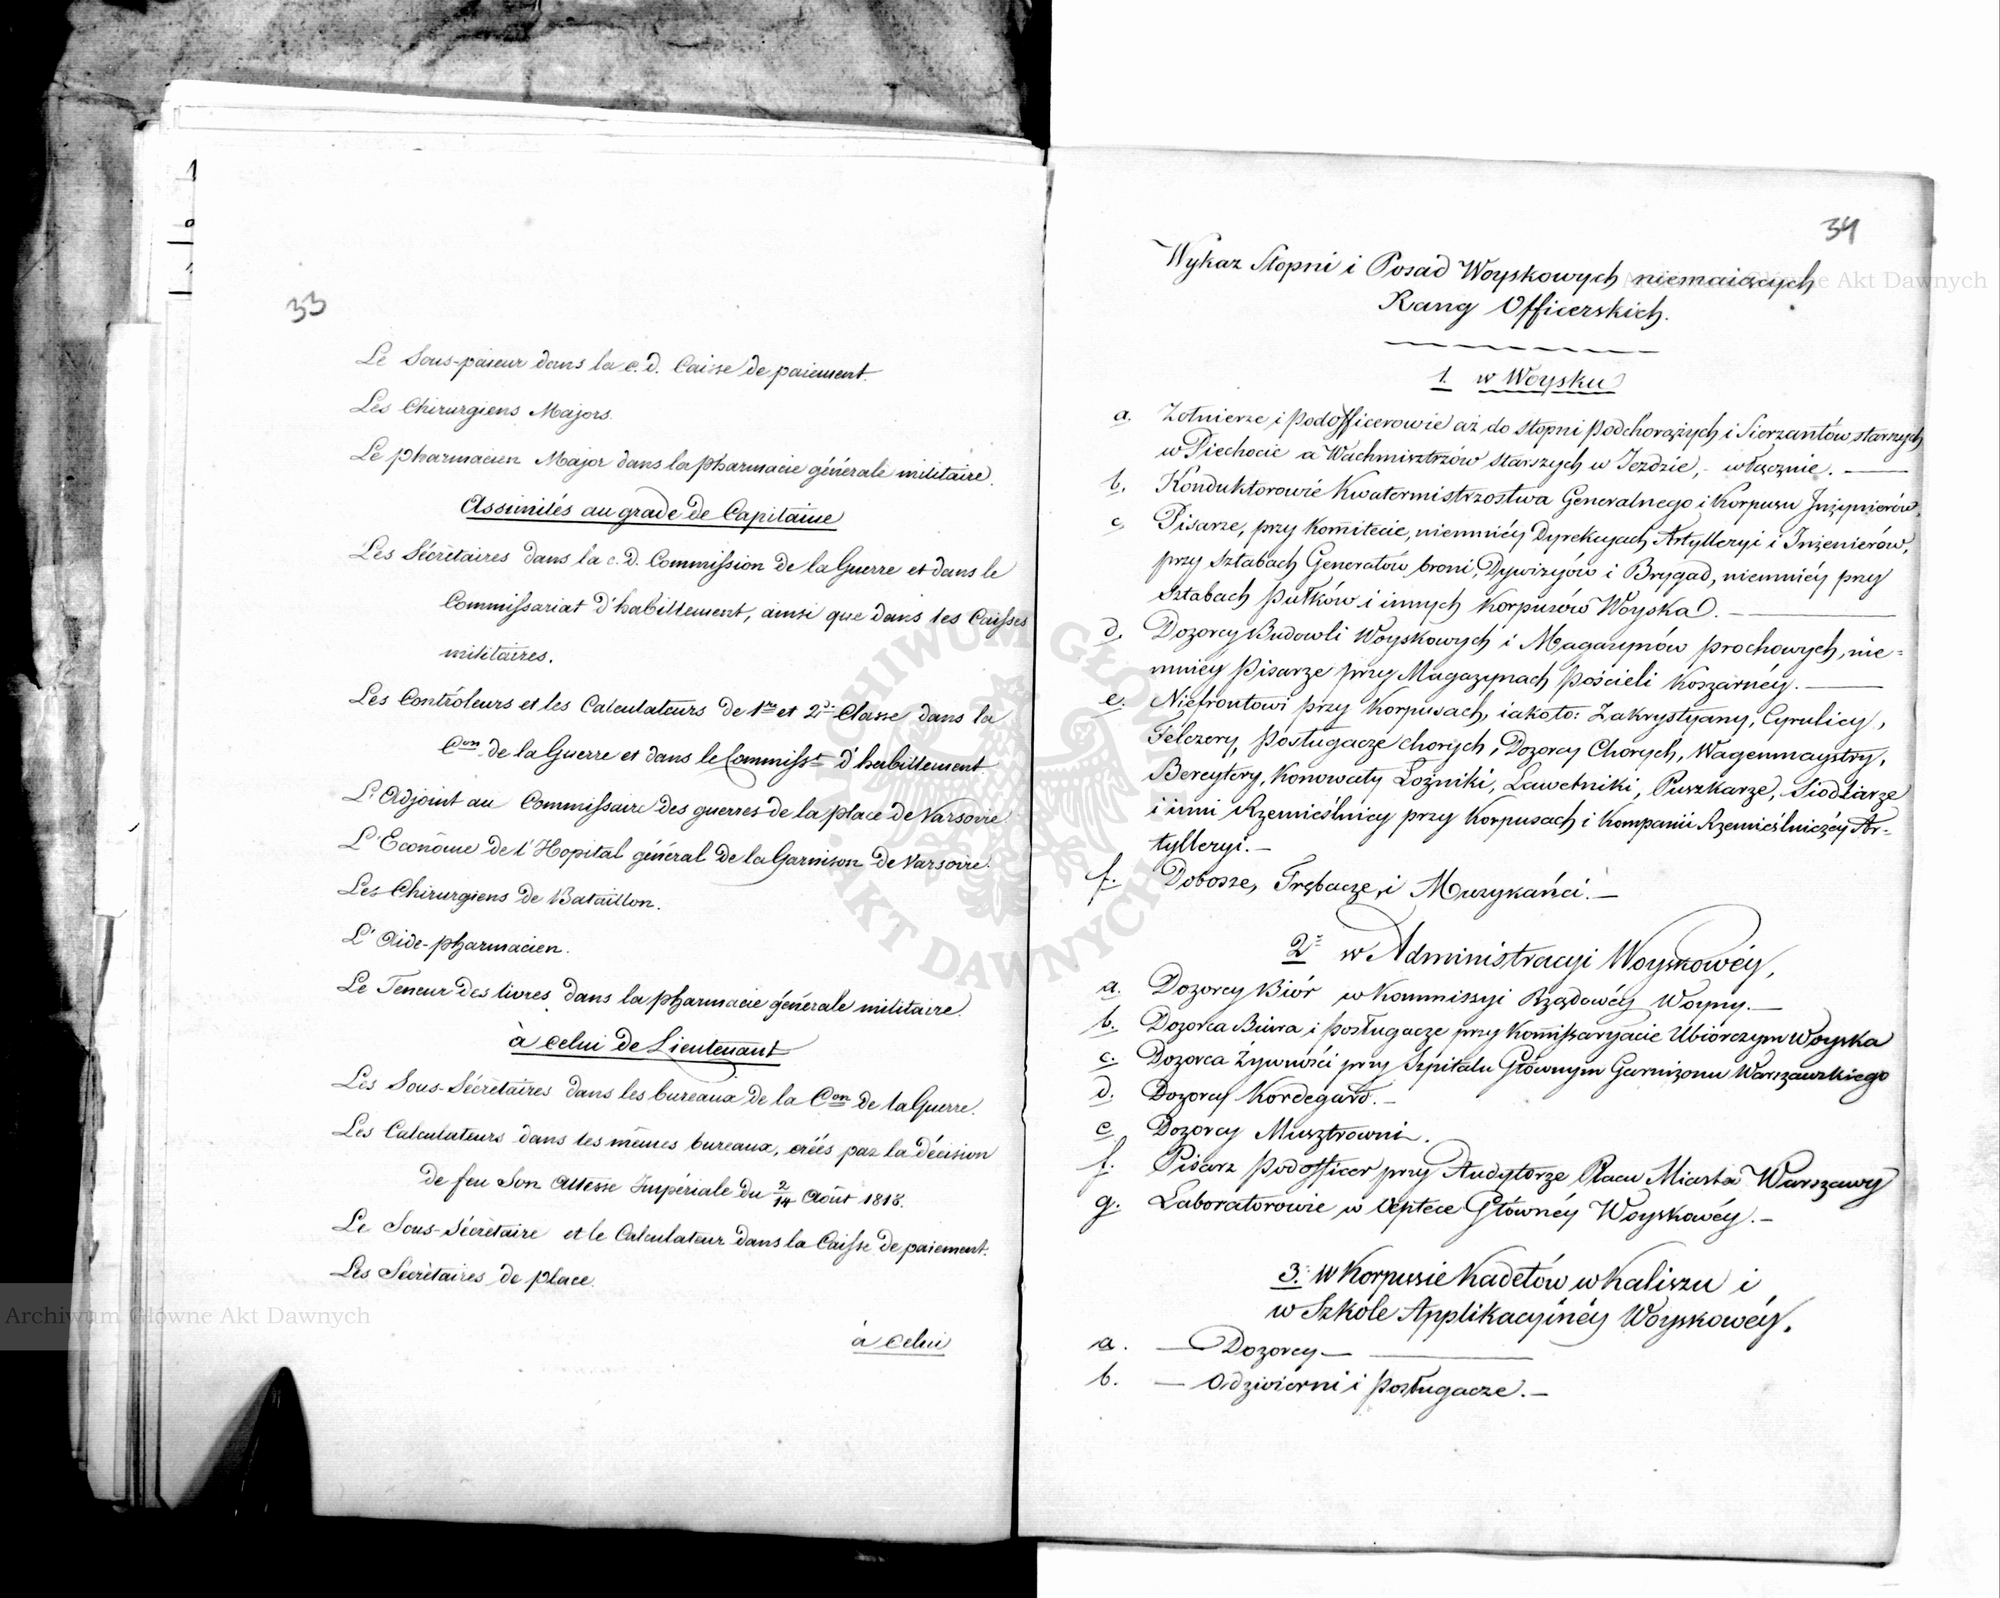 33
Le Sous-païeur dans la c. d. Caisse de paiement.
Les Chirurgiens Majors.
Le pharmacien Major dans la pharmacie générale militaire.
Assimilés au grade de Capitaine
Les Sécrétaires dans la c. d. Commission de la Guerre et dans le
Commissariat d'habillement, ainsi que dans les Caisses
militaires.
Les Contrôleurs et les Calculateurs de 1re et 2d. Classe dans la
Con de la Guerre et dans le Commisst d'habillement.
L'Adjoint au Commissaire des guerres de la place de Varsovie
L'Econôme de l'Hopital général de la Garnison de Varsovie.
Les Chirurgiens de Bataillon.
L'Aide-pharmacien.
Le Teneur des livres dans la pharmacie générale militaire.
à celui de Lieutenant
Les Sous-Sécrétaires dans les bureaux de la Con de la Guerre.
Les Calculateurs dans les mêmes bureaux, créés par la décision
de feu Son Altesse Impériale du 2/14 Août 1818.
Le Sous-Sécrétaire et le Calculateur dans la Caisse de paiement.
Les Sécrétaires de place.
à celui
34
Wykaz Stopni i Posad Woyskowych niemaiących
Rang Officerskich.
1. w Woysku
a. Żołnierze i Podofficerowie aż do stopni Podchorążych i Sierzantów starszych
w Piechocie a Wachmistrzów starszych w Jeździe, włącznie.
b. Konduktorowie Kwatermistrzostwa Generalnego i Korpusu Jnżynierów,
c. Pisarze, przy Komitecie, niemniéy Dyrekcyach Artylleryi i Inżenierów,
przy Sztabach Generałów broni, Dywizyów i Brygad, niemniéy przy
Sztabach Pułków i innych Korpusów Woyska.
d. Dozorcy Budowli Woyskowych i Magazynów prochowych, nie=
mniéy Pisarze przy Magazynach Pościeli Koszarnéy.
e. Niefrontowi przy Korpusach, iakoto: Zakrystyany, Cyrulicy,
Felczery, Posługacze chorych, Dozorcy Chorych, Wagenmaystry,
Bereytery, Konowały Łożniki, Lawetniki, Puszkarze, Siodlarze
i inni Rzemieślnicy przy Korpusach i Kompanii Rzemieślniczéy Ar-
tylleryi.
f. Dobosze, Trębacze, i Muzykańci.
2. w Administracyi Woyskowéy,
a. Dozorcy Biór w Kommissyi Rządowéy Woyny.
b. Dozorca Biura i Posługacze przy Komissaryacie Ubiorczym Woyska
c. Dozorca Żywności przy Szpitalu Głównym Garnizonu Warszawskiego
d. Dozorcy Kordegard.
e. Dozorcy Musztrowni.
f. Pisarz Podofficer przy Audytorze Placu Miasta Warszawy
g. Laboratorowie w Aptece Głównéy Woyskowéy.
3. w Korpusie Kadetów w Kaliszu i
w Szkole Applikacyinéy Woyskowéy.
a. — Dozorcy —
b. — Odzwierni i Posługacze. —
Archiwum Główne Akt Dawnych
Archiwum Główne Akt Dawnych
ARCHIWUM GŁÓWNE AKT DAWNYCH